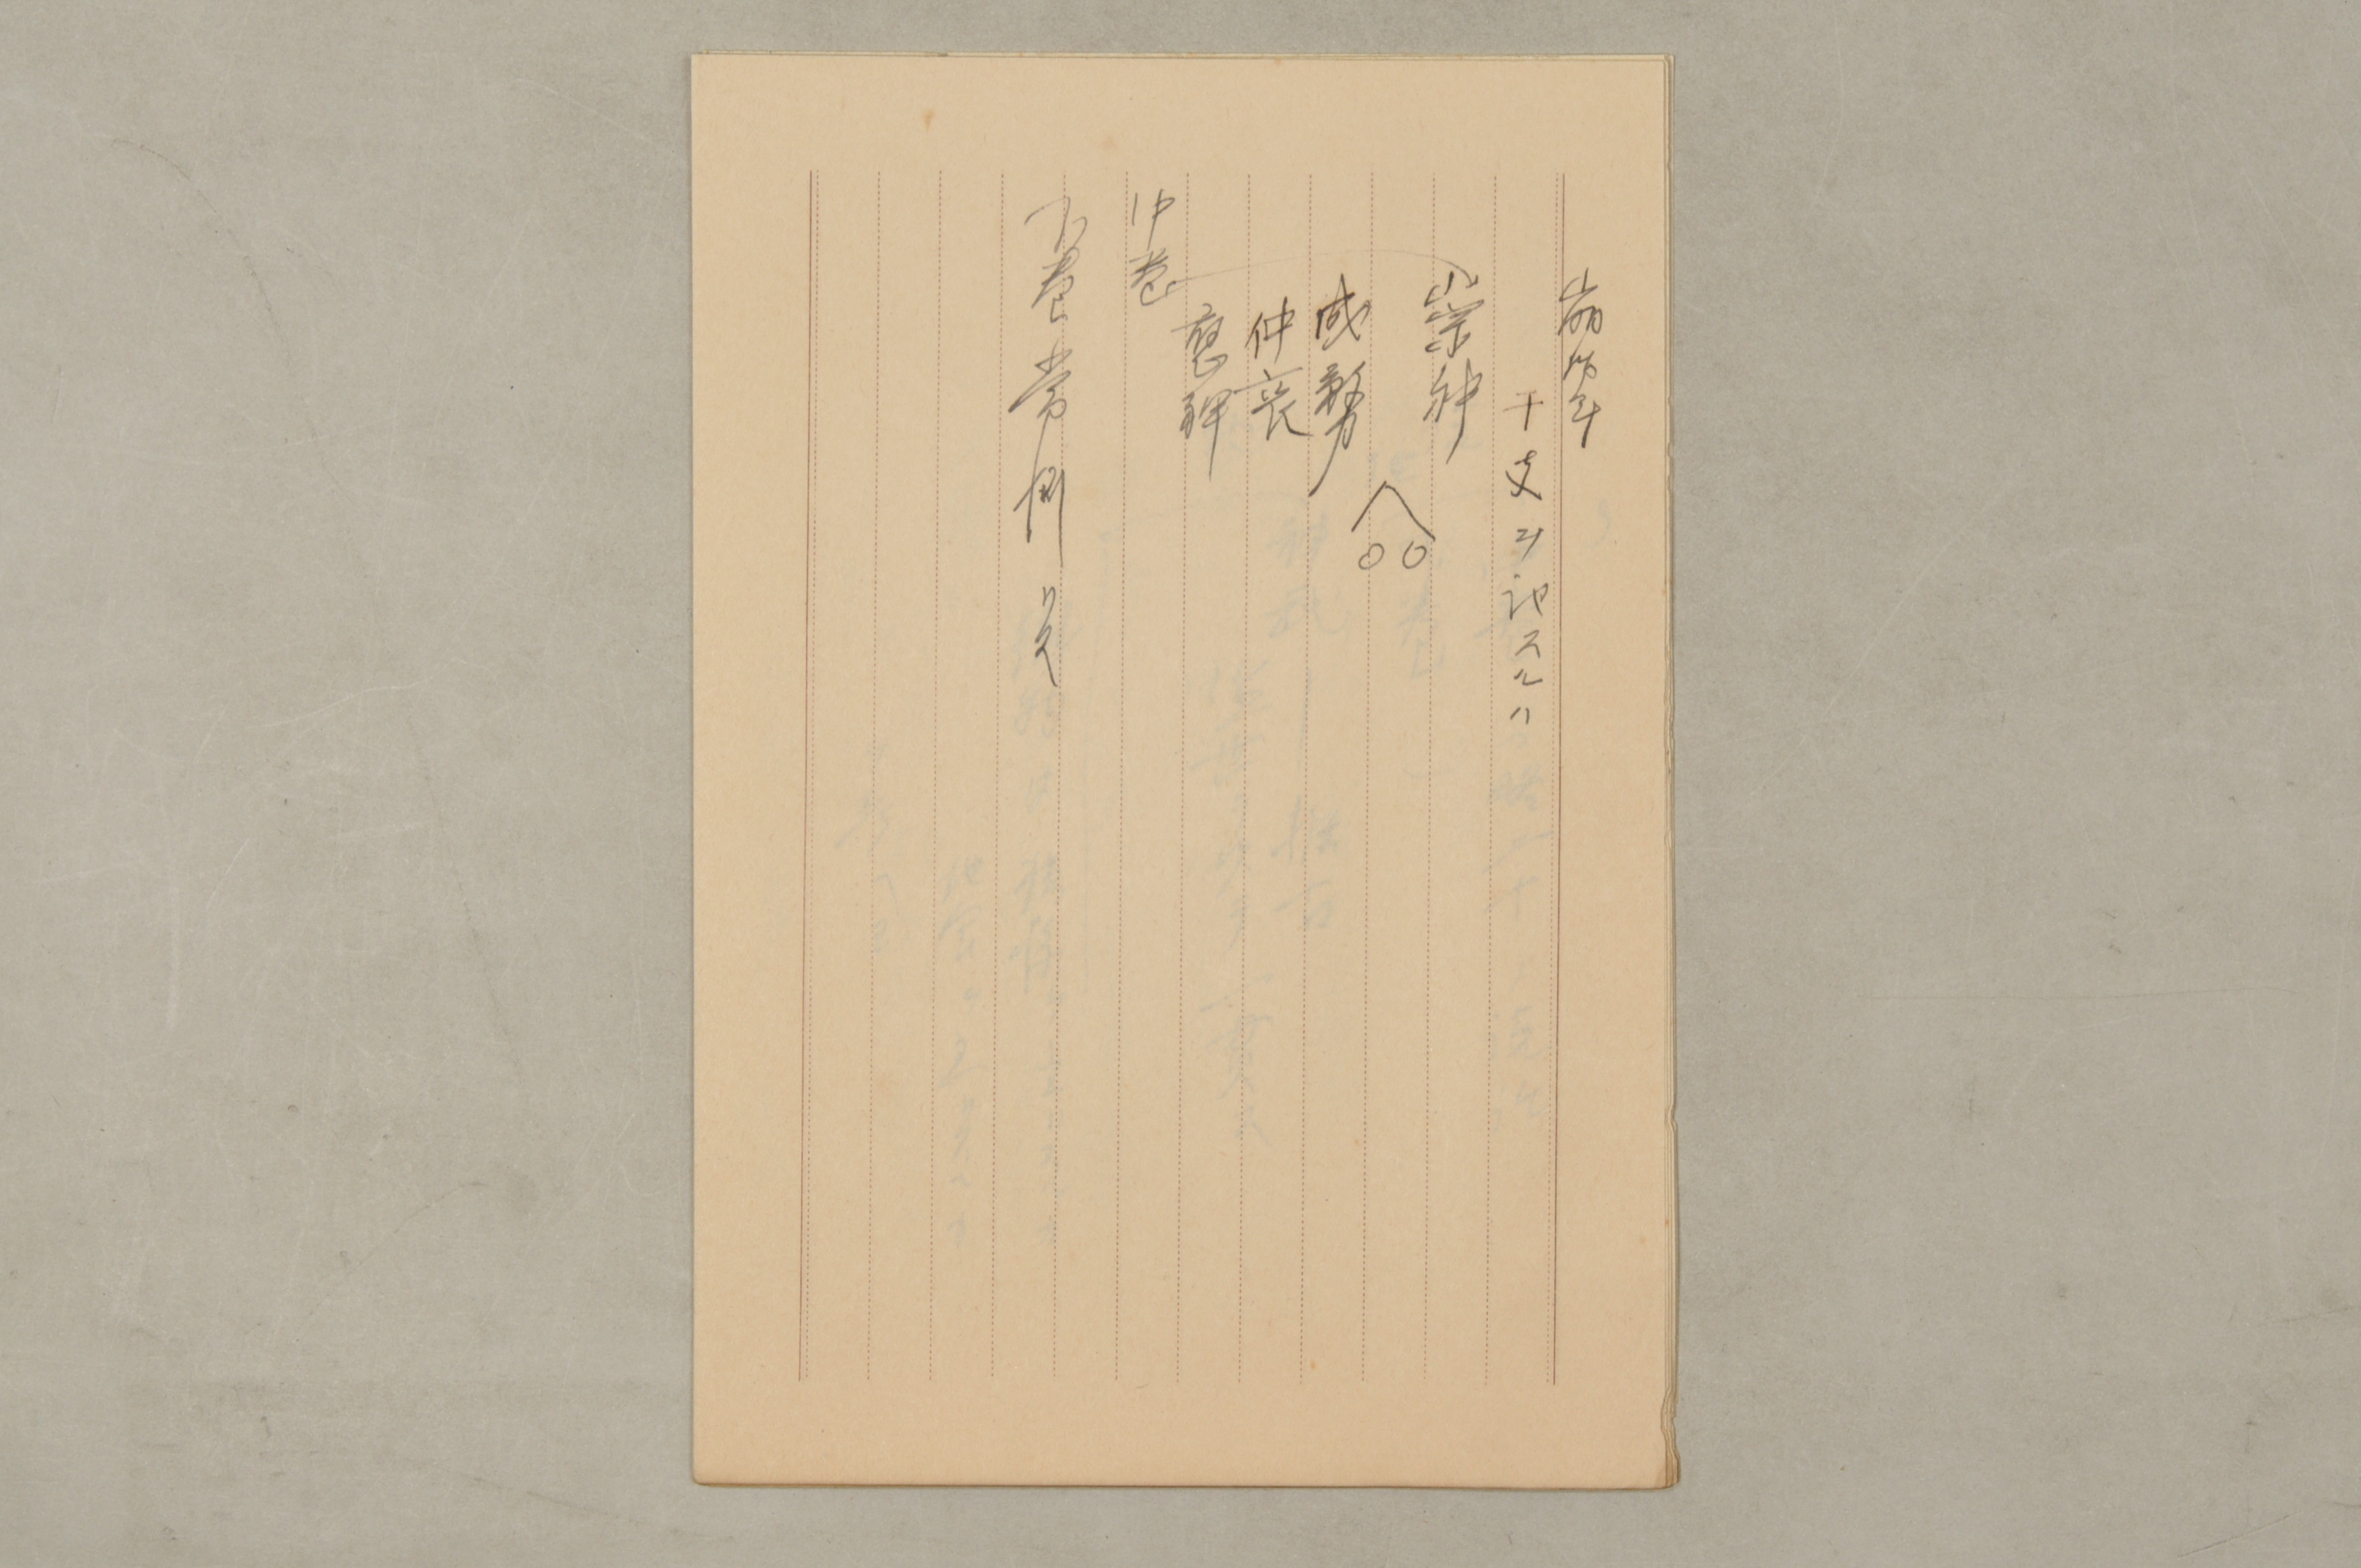 崩御年
干支ヲ記スルハ
崇神
○○
成務
仲哀
應神
仲巻
下巻常例